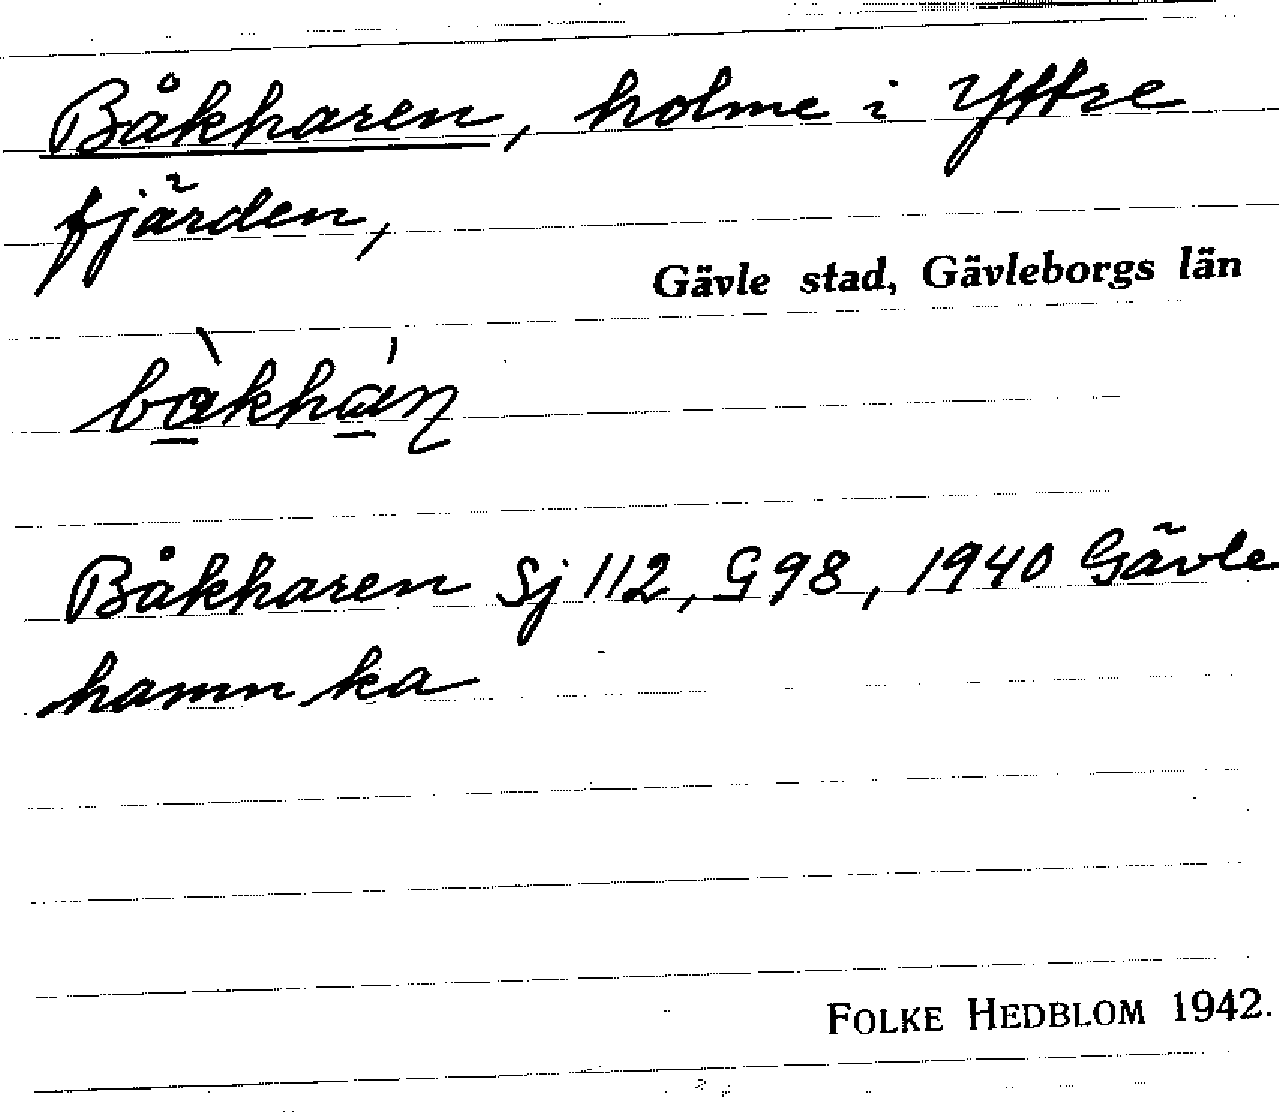 Båkharen, holme i Yttre
fjärden,
Gävle stad, Gävleborgs län
Båkharen Sj 112, G 98, 1940 Gävle
hamn ka
FOLKE HEDBLOM 1942.